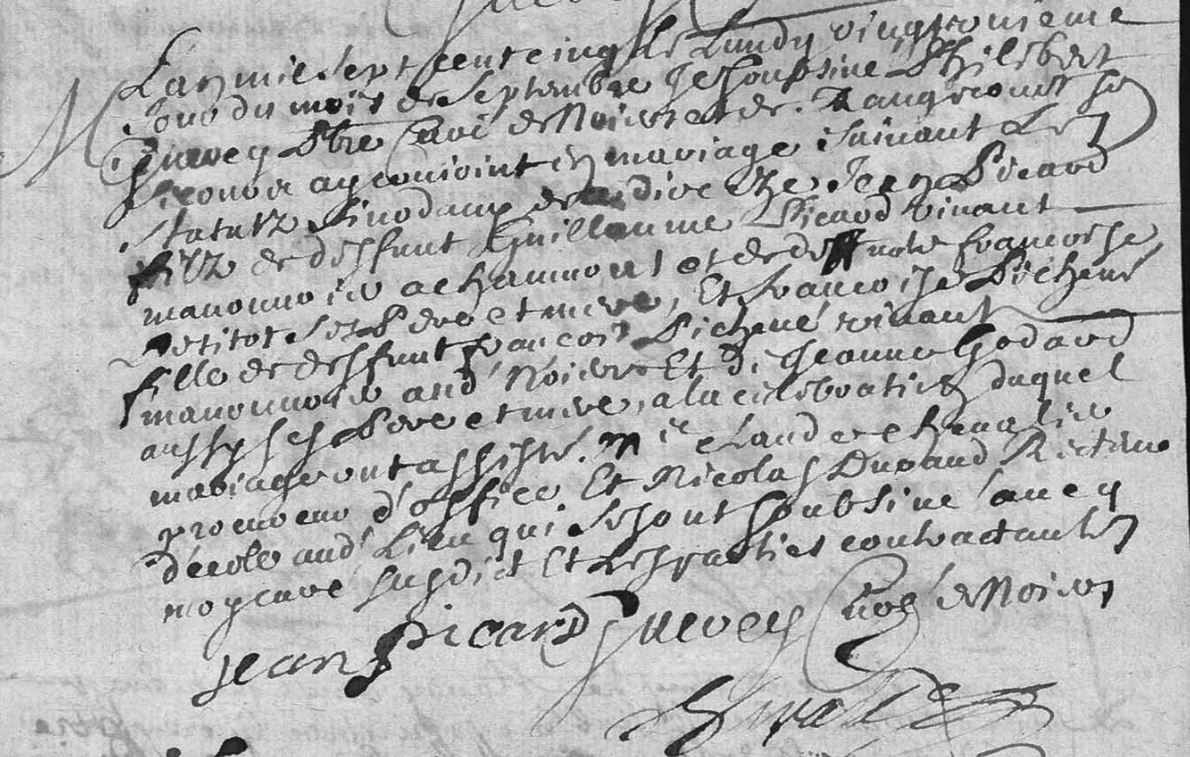 M
Lan mil sept cent cinq le Lundy vingtroisieme
Jour du mois de Septembre Je soubsine Philebert
Quevey Pbre Curé de Noiers et de
ay conioint en mariage suiuant Les
statutz sinodaux de ce dioceze Jean Picard
filz de deffunt Guillaume Picard viuant
manouurie a chaumont et de deffunte francoise
Petitot ses Pere et mere, Et francoise Pichené
fille de deffunt francois Pichené viuant
manouurie aud' Noiers Et de Jeanne Godard
aussy ses Pere et mere, a la celebration duquel
mariage ont assiste. Mre Claude cheualie
procureur d'office Et Nicolas Durand Recteur
d'ecole aud' Lieu qui se sont soubsine auec
moy cure susdict Et Les parties contractantes
Jean Picard Quevey Curé de Noiers